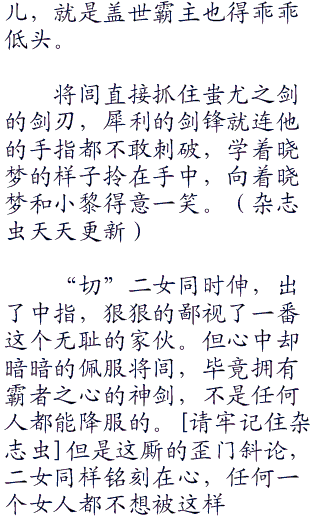 儿，就是盖世霸主也得乖乖
低头。
将闾直接抓住蚩尤之剑
的剑刃，犀利的剑锋就连他
的手指都不敢刺破，学着晓
梦的样子拎在手中，向着晓
梦和小黎得意一笑。（杂志
虫天天更新）
“切”二女同时伸，出
了中指，狠狠的鄙视了一番
这个无耻的家伙。但心中却
暗暗的佩服将闾，毕竟拥有
霸者之心的神剑，不是任何
人都能降服的。[请牢记住杂
志虫]但是这厮的歪门斜论，
二女同样铭刻在心，任何一
个女人都不想被这样